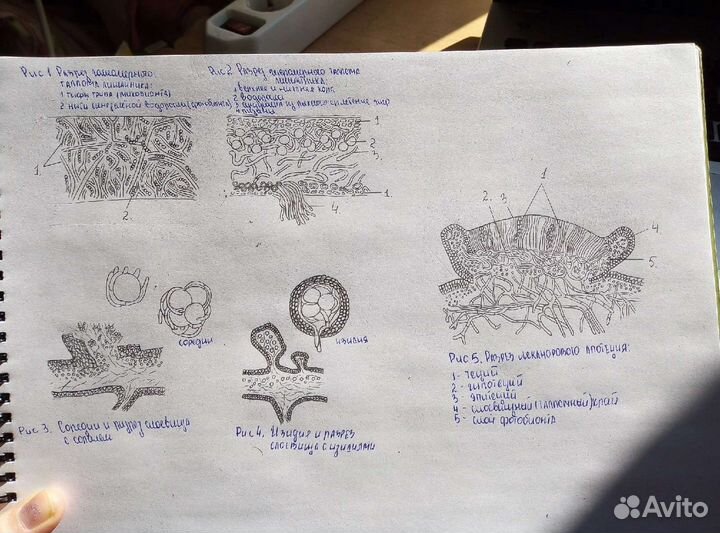 Рис 1. Разрез гомеомерного
таллома лишайника:
1 гифы гриба (микобионта)
2 нити синезелёной водоросли (фотобионта)
Рис 2. Разрез гетеромерного таллома
лишайника:
1 верхняя и нижняя кора
2 водоросли
3 сердцевина из рыхлого сплетения гиф
4 ризоиды
1.
2.
1
2
3.
1.
4.
соредии
изидия
Рис 3. Соредии и разрез слоевища
с соралем
Рис 4. Изидия и разрез
слоевища с изидиями
2. 3. 1
4
5.
Рис 5. Разрез леканорового апотеция:
1- теций
2- гипотеций
3 эпитеций
4 - слоевищный (талломный) край
5- слой фотобионта
Avito